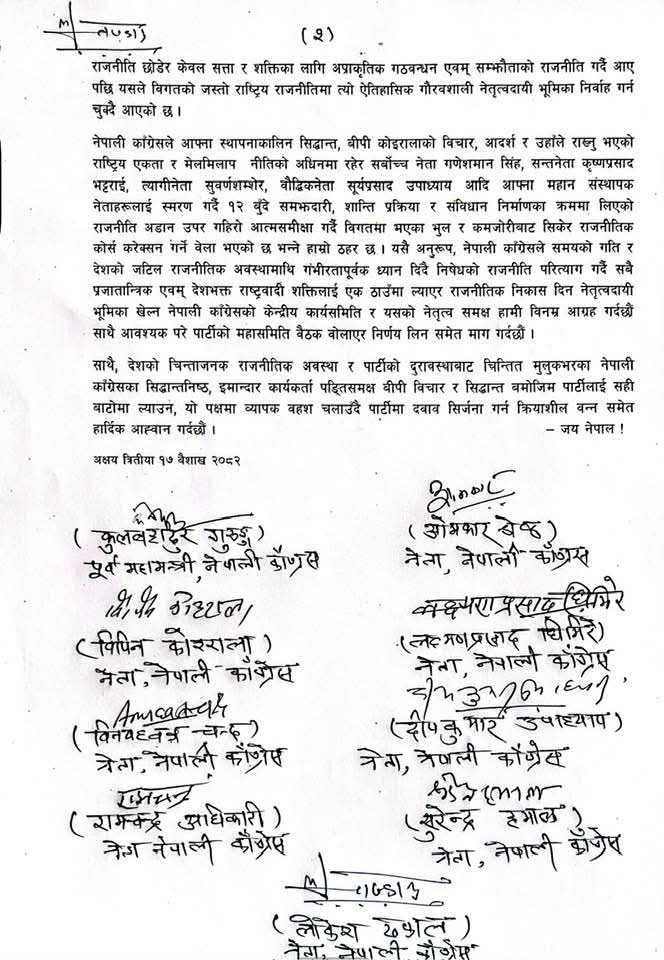 (२)
राजनीति छोडेर केवल सत्ता र शक्तिका लागि अप्राकृतिक गठवन्धन एवम् सम्झौताको राजनीति गर्दै आए
पछि यसले विगतको जस्तो राष्ट्रिय राजनीतिमा त्यो ऐतिहासिक गौरवशाली नेतृत्वदायी भूमिका निर्वाह गर्न
चुक्दै आएको छ ।
नेपाली काँग्रेसले आफ्ना स्थापनाकालिन सिद्धान्त, बीपी कोइरालाको विचार, आदर्श र उहाँले राख्नु भएको
राष्ट्रिय एकता र मेलमिलाप नीतिको अधिनमा रहेर सर्बोच्च नेता गणेशमान सिंह, सन्तनेता कृष्णप्रसाद
भट्टराई, त्यागीनेता सुवर्णशम्शेर, वौद्धिकनेता सूर्यप्रसाद उपाध्याय आदि आफ्ना महान संस्थापक
नेताहरूलाई स्मरण गर्दै १२ बुँदे समझदारी, शान्ति प्रक्रिया र संविधान निर्माणका क्रममा लिएको
राजनीति अडान उपर गहिरो आत्मसमीक्षा गर्दै विगतमा भएका भुल र कमजोरीबाट सिकेर राजनीतिक
कोर्स करेक्सन गर्ने वेला भएको छ भन्ने हाम्रो ठहर छ । यसै अनुरूप, नेपाली काँग्रेसले समयको गति र
देशको जटिल राजनीतिक अवस्थामाथि गंभीरतापूर्वक ध्यान दिदै निषेधको राजनीति परित्याग गर्दै सबै
प्रजातान्त्रिक एवम् देशभक्त राष्ट्रवादी शक्तिलाई एक ठाउँमा ल्याएर राजनीतिक निकास दिन नेतृत्वदायी
भूमिका खेल्न नेपाली काँग्रेसको केन्द्रीय कार्यसमिति र यसको नेतृत्व समक्ष हामी विनम्र आग्रह गर्दछौं
साथै आवश्यक परे पार्टीको महासमिति बैठक बोलाएर निर्णय लिन समेत माग गर्दछौं ।
साथै, देशको चिन्ताजनक राजनीतिक अवस्था र पार्टीको दुरावस्थाबाट चिन्तित मुलुकभरका नेपाली
काँग्रेसका सिद्धान्तनिष्ठ, इमान्दार कार्यकर्ता पङ्तिसमक्ष बीपी विचार र सिद्धान्त बमोजिम पार्टीलाई सही
बाटोमा ल्याउन, यो पक्षमा व्यापक वहश चलाउँदै पार्टीमा दवाव सिर्जना गर्न क्रियाशील वन्न समेत
हार्दिक आह्वान गर्दछौं ।
– जय नेपाल !
अक्षय त्रितीया १७ वैशाख २०८२
(कुलबहादुर गुरुङ)
पूर्व महामन्त्री, नेपाली काँग्रेस
(ओमकार श्रेष्ठ)
नेता, नेपाली काँग्रेस
(विपिन कोइराला)
नेता, नेपाली काँग्रेस
लक्ष्मणप्रसाद घिमिरे
(लक्ष्मणप्रसाद घिमिरे)
नेता, नेपाली काँग्रेस
(विनयध्वज चन्द)
नेता, नेपाली काँग्रेस
(दीपकुमार उपाध्याय)
नेता, नेपाली काँग्रेस
रामचन्द्र
(रामचन्द्र अधिकारी)
नेता नेपाली काँग्रेस
(सुरेन्द्र हमाल)
नेता, नेपाली काँग्रेस
(लोकेश ढकाल)
नेता, नेपाली काँग्रेस